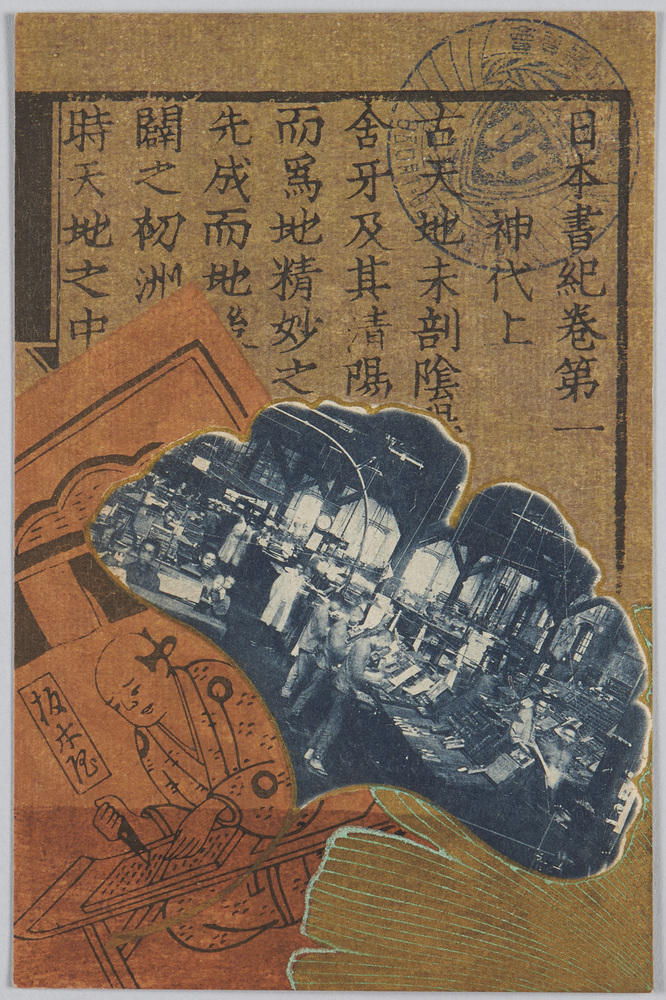 日本書紀巻第一
神代上
古天地未剖陰
舍牙及其清陽
而爲地精妙之
先成而地後
闢之初洲
時天地之中
板木屋